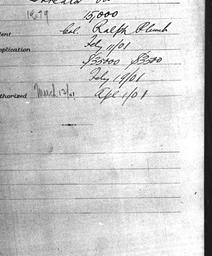 1879 15,000
ent Col. Ralph Plumb
pplication July 11/01
$35000 $3500
July 19/01
thorized March 12/01 Apl 1/01